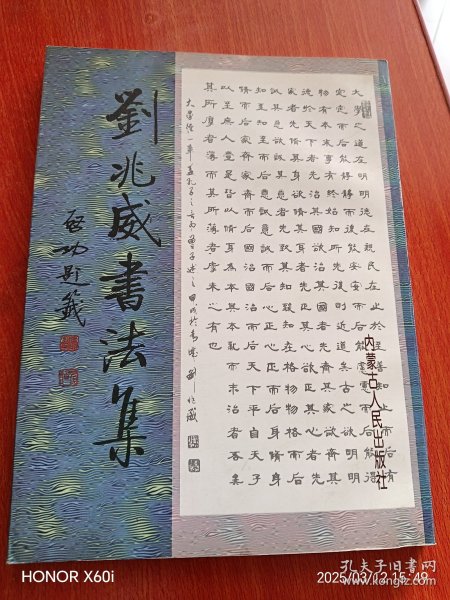 劉兆威書法集
啓功題籤
大學之道在明明德在親民在止於至善知止而后有
定定而后能靜靜而後能安安而后能慮慮而后能得
物有本末事有終始知所先後則近道矣古之欲明明
德於天下者先治其國欲治其國者先齊其家欲齊其
家者先脩其身欲脩其身者先正其心欲正其心者先
誠其意欲誠其意者先致其知致知在格物物格而后
知至知至而后意誠意誠而后心正心正而后身脩身
脩而后家齊家齊而后國治國治而后天下平自天子
以至庶人壹是皆以脩身為本其本亂而末治者否矣
其所厚者薄而其所薄者厚未之有也
大學經一章蓋孔子之言而曾子述之 甲戌於青城 劉兆威
内蒙古人民出版社
HONOR X60i
2025/03/12 15:49
孔夫子旧书网